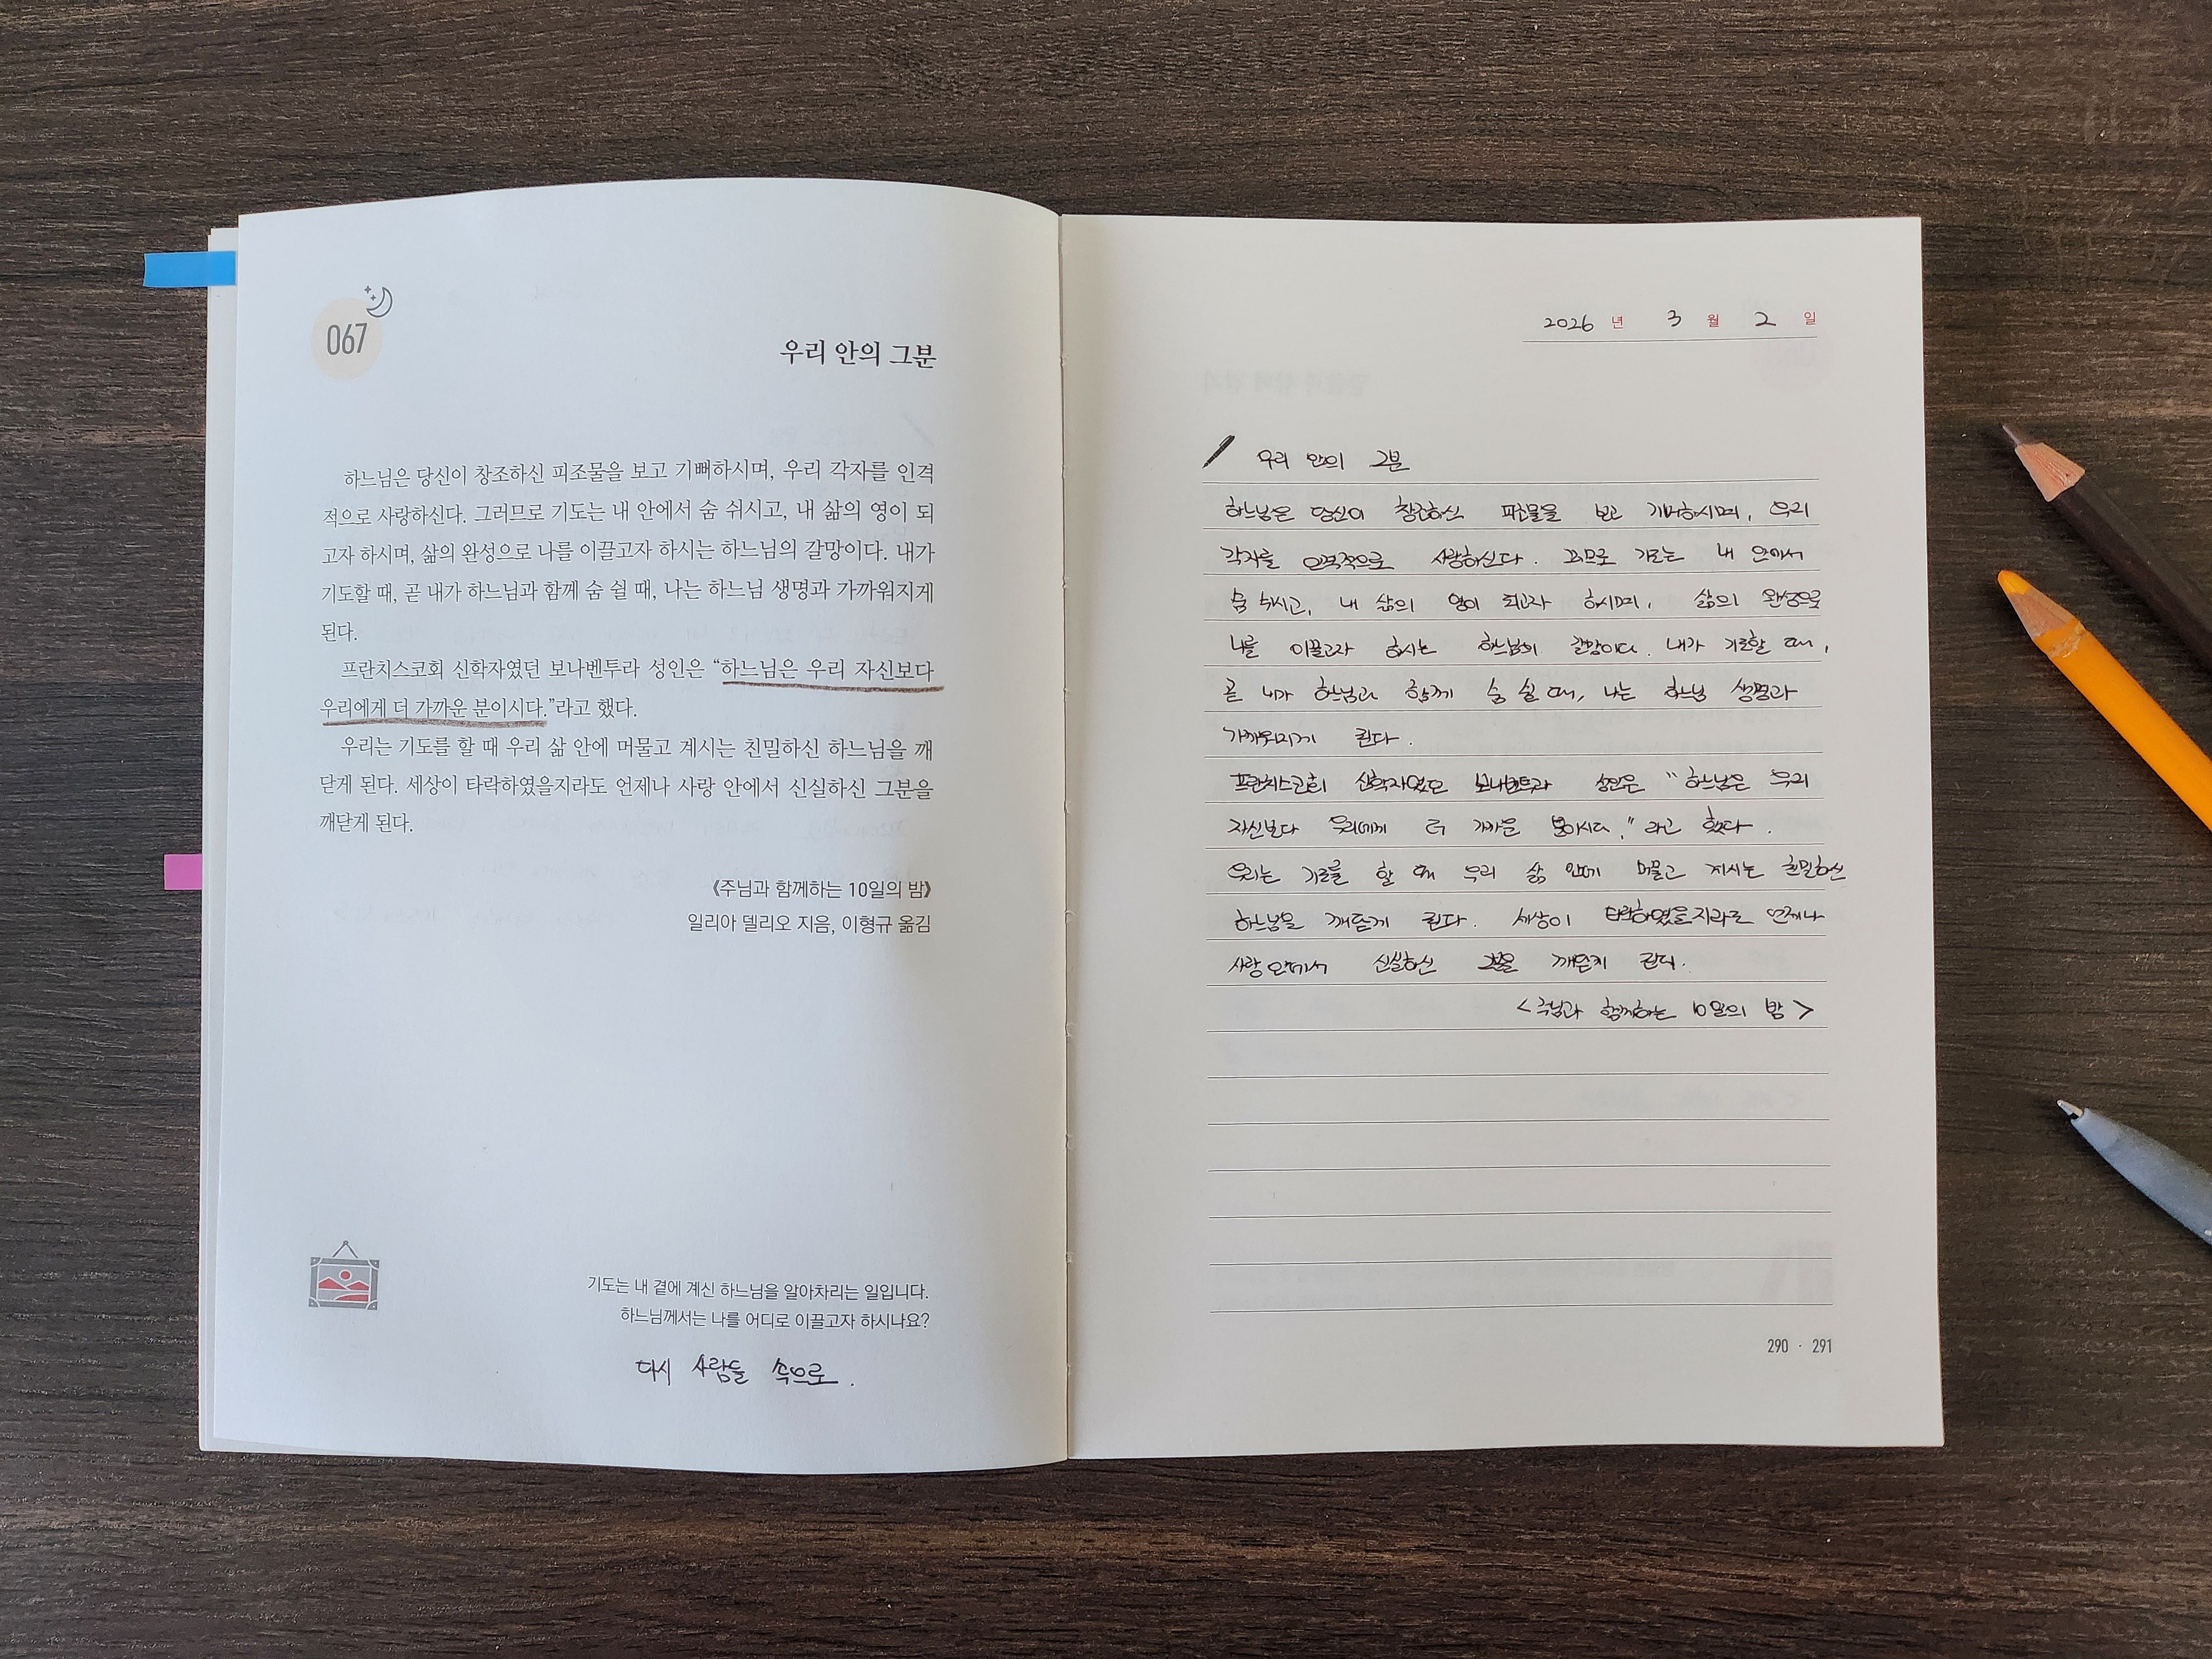 067
우리 안의 그분
하느님은 당신이 창조하신 피조물을 보고 기뻐하시며, 우리 각자를 인격
적으로 사랑하신다. 그러므로 기도는 내 안에서 숨 쉬시고, 내 삶의 영이 되
고자 하시며, 삶의 완성으로 나를 이끌고자 하시는 하느님의 갈망이다. 내가
기도할 때, 곧 내가 하느님과 함께 숨 쉴 때, 나는 하느님 생명과 가까워지게
된다.
프란치스코회 신학자였던 보나벤투라 성인은 “하느님은 우리 자신보다
우리에게 더 가까운 분이시다.”라고 했다.
우리는 기도를 할 때 우리 삶 안에 머물고 계시는 친밀하신 하느님을 깨
닫게 된다. 세상이 타락하였을지라도 언제나 사랑 안에서 신실하신 그분을
깨닫게 된다.
《주님과 함께하는 10일의 밤》
일리아 델리오 지음, 이형규 옮김
기도는 내 곁에 계신 하느님을 알아차리는 일입니다.
하느님께서는 나를 어디로 이끌고자 하시나요?
다시 사람들 속으로.
2026 년 3 월 2 일
우리 안의 그분
하느님은 당신이 창조하신 피조물을 보고 기뻐하시며, 우리
각자를 인격적으로 사랑하신다. 그러므로 기도는 내 안에서
숨 쉬시고, 내 삶의 영이 되고자 하시며, 삶의 완성으로
나를 이끌고자 하시는 하느님의 갈망이다. 내가 기도할 때,
곧 내가 하느님과 함께 숨 쉴 때, 나는 하느님 생명과
가까워지게 된다.
프란치스코회 신학자였던 보나벤투라 성인은 “하느님은 우리
자신보다 우리에게 더 가까운 분이시다.”라고 했다.
우리는 기도를 할 때 우리 삶 안에 머물고 계시는 친밀하신
하느님을 깨닫게 된다. 세상이 타락하였을지라도 언제나
사랑 안에서 신실하신 그분을 깨닫게 된다.
<주님과 함께하는 10일의 밤>
290 · 291